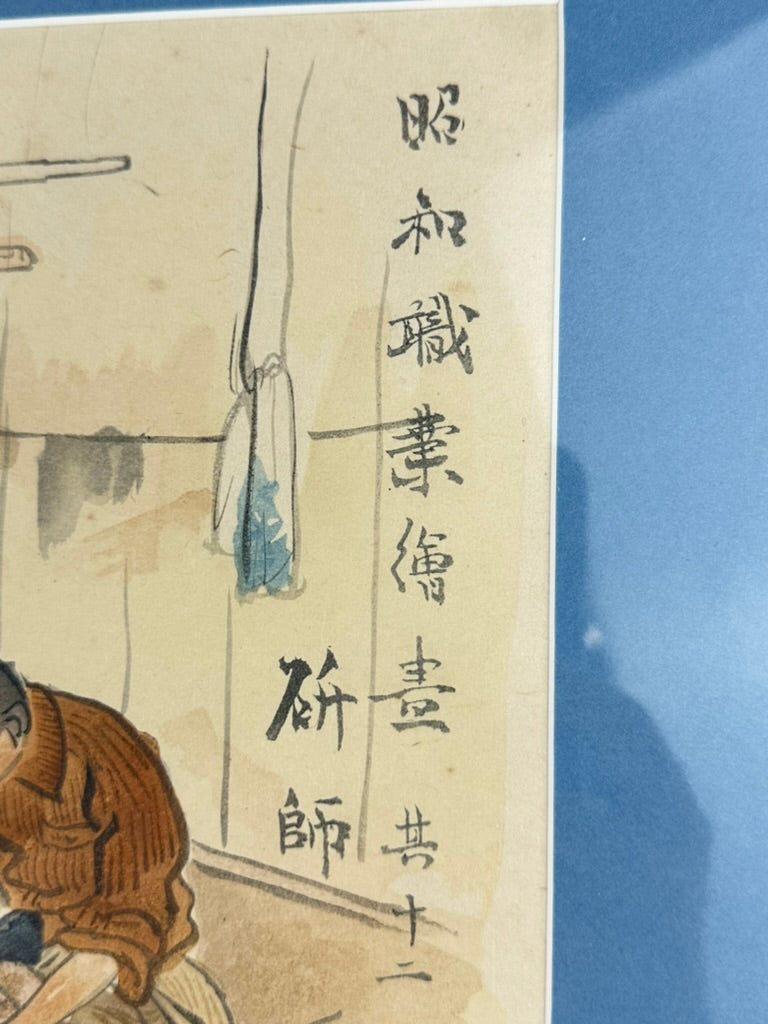 昭和職業繪盡 其十二
研師